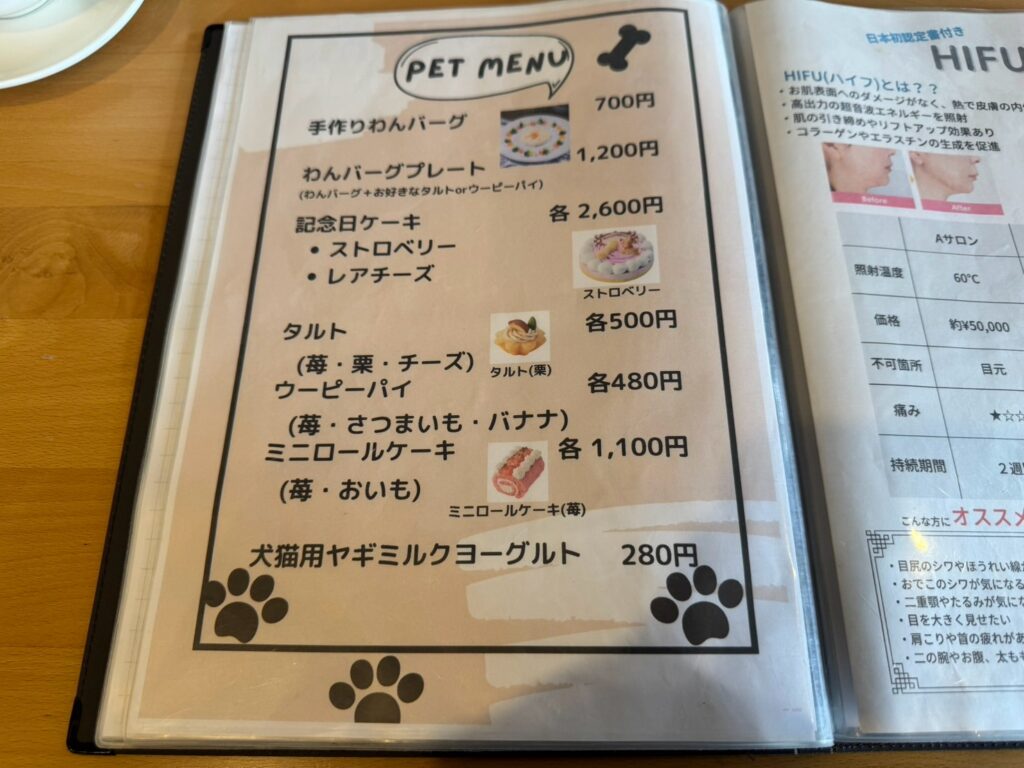 PET MENU
手作りわんバーグ 700円
わんバーグプレート 1,200円
(わんバーグ+お好きなタルトorウーピーパイ)
記念日ケーキ 各 2,600円
• ストロベリー
• レアチーズ
ストロベリー
タルト 各500円
(苺・栗・チーズ)
タルト(栗)
ウーピーパイ 各480円
(苺・さつまいも・バナナ)
ミニロールケーキ 各 1,100円
(苺・おいも)
ミニロールケーキ(苺)
犬猫用ヤギミルクヨーグルト 280円
日本初認定書付き
HIFU
HIFU(ハイフ)とは？？
・お肌表面へのダメージがなく、熱で皮膚の内
・高出力の超音波エネルギーを照射
・肌の引き締めやリフトアップ効果あり
・コラーゲンやエラスチンの生成を促進
Before After
Aサロン
照射温度 60℃
価格 約¥50,000
不可箇所 目元
痛み ★☆☆
持続期間 2週
こんな方にオススメ
・目尻のシワやほうれい線が
・おでこのシワが気になる
・二重顎やたるみが気にな
・目を大きく見せたい
・肩こりや首の疲れがあ
・二の腕やお腹、太もも